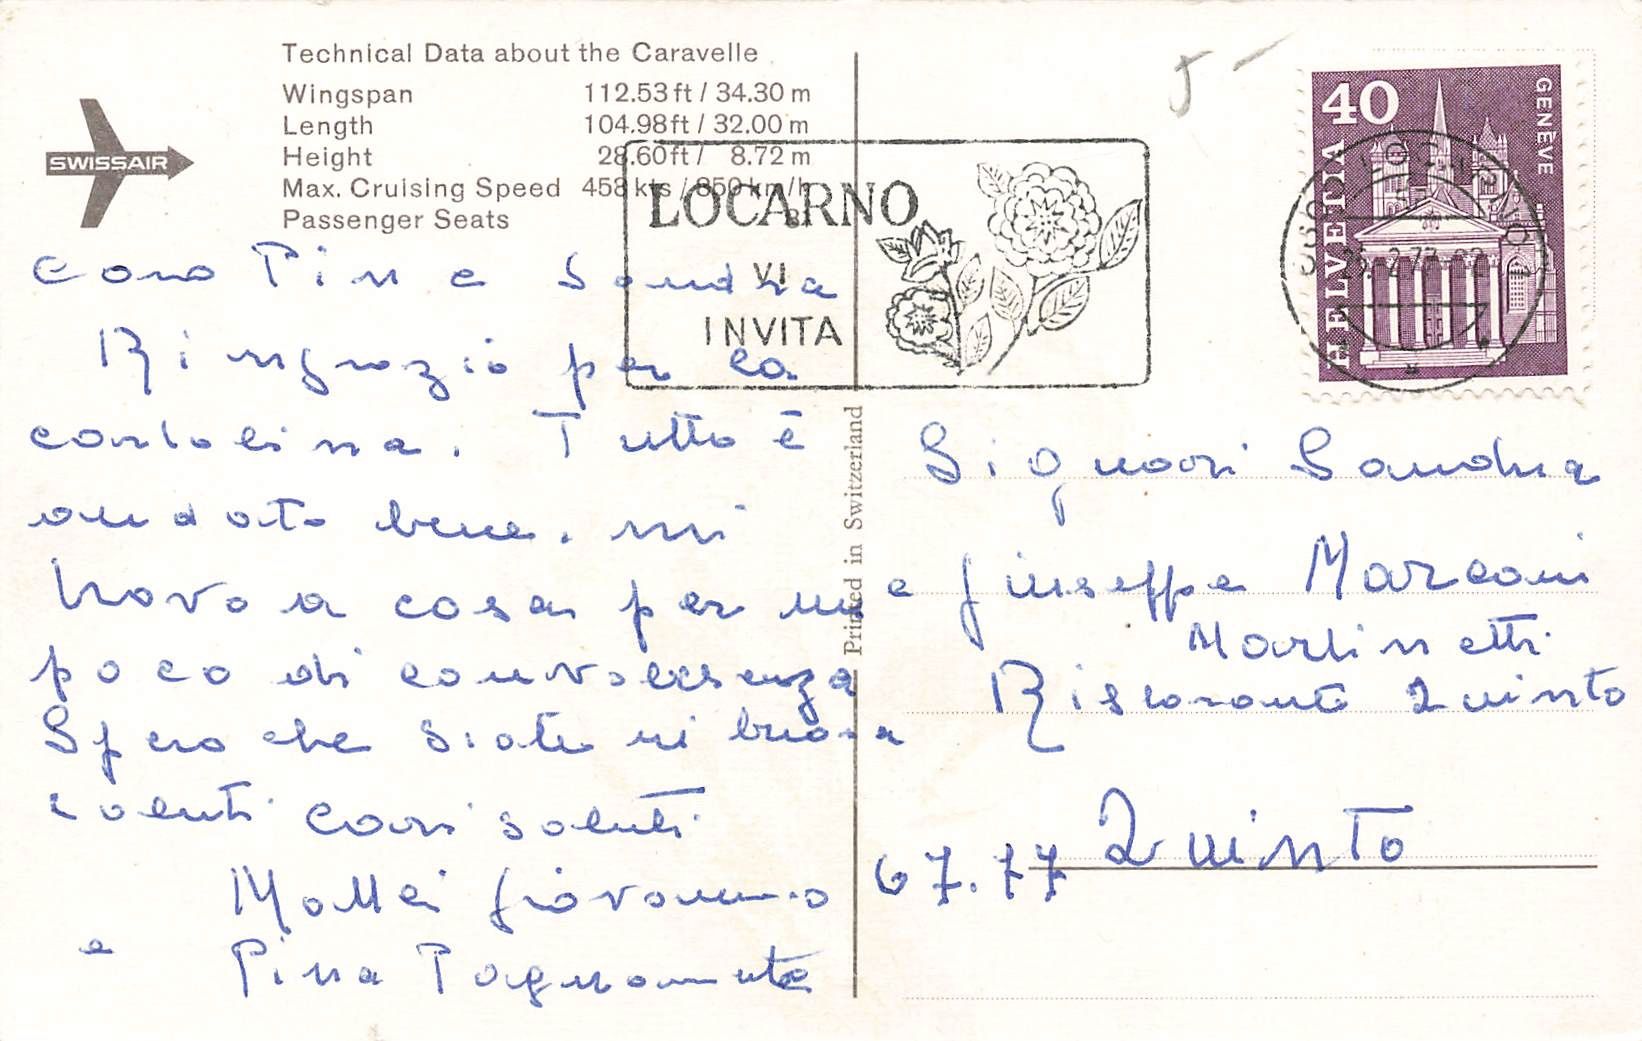 SWISSAIR
Technical Data about the Caravelle
Wingspan 112.53 ft / 34.30 m
Length 104.98 ft / 32.00 m
Height 28.60 ft / 8.72 m
Max. Cruising Speed 458 kts / 850 km/h
Passenger Seats 8
LOCARNO
VI
INVITA
5 -
40
HELVETIA
GENÈVE
LOCARNO 1
Caro Pin e Sandra
Ringrazio per la
cartolina. Tutto è
andato bene. mi
trovo a casa per un
poco di convalescenza
Spero che siate in buona
cari saluti
Mattei Giovanni
e Pina
Printed in Switzerland
Signori Sandra
e Giuseppe Marconi
Martinetti
Ristorante Quinto
67.77 Quinto